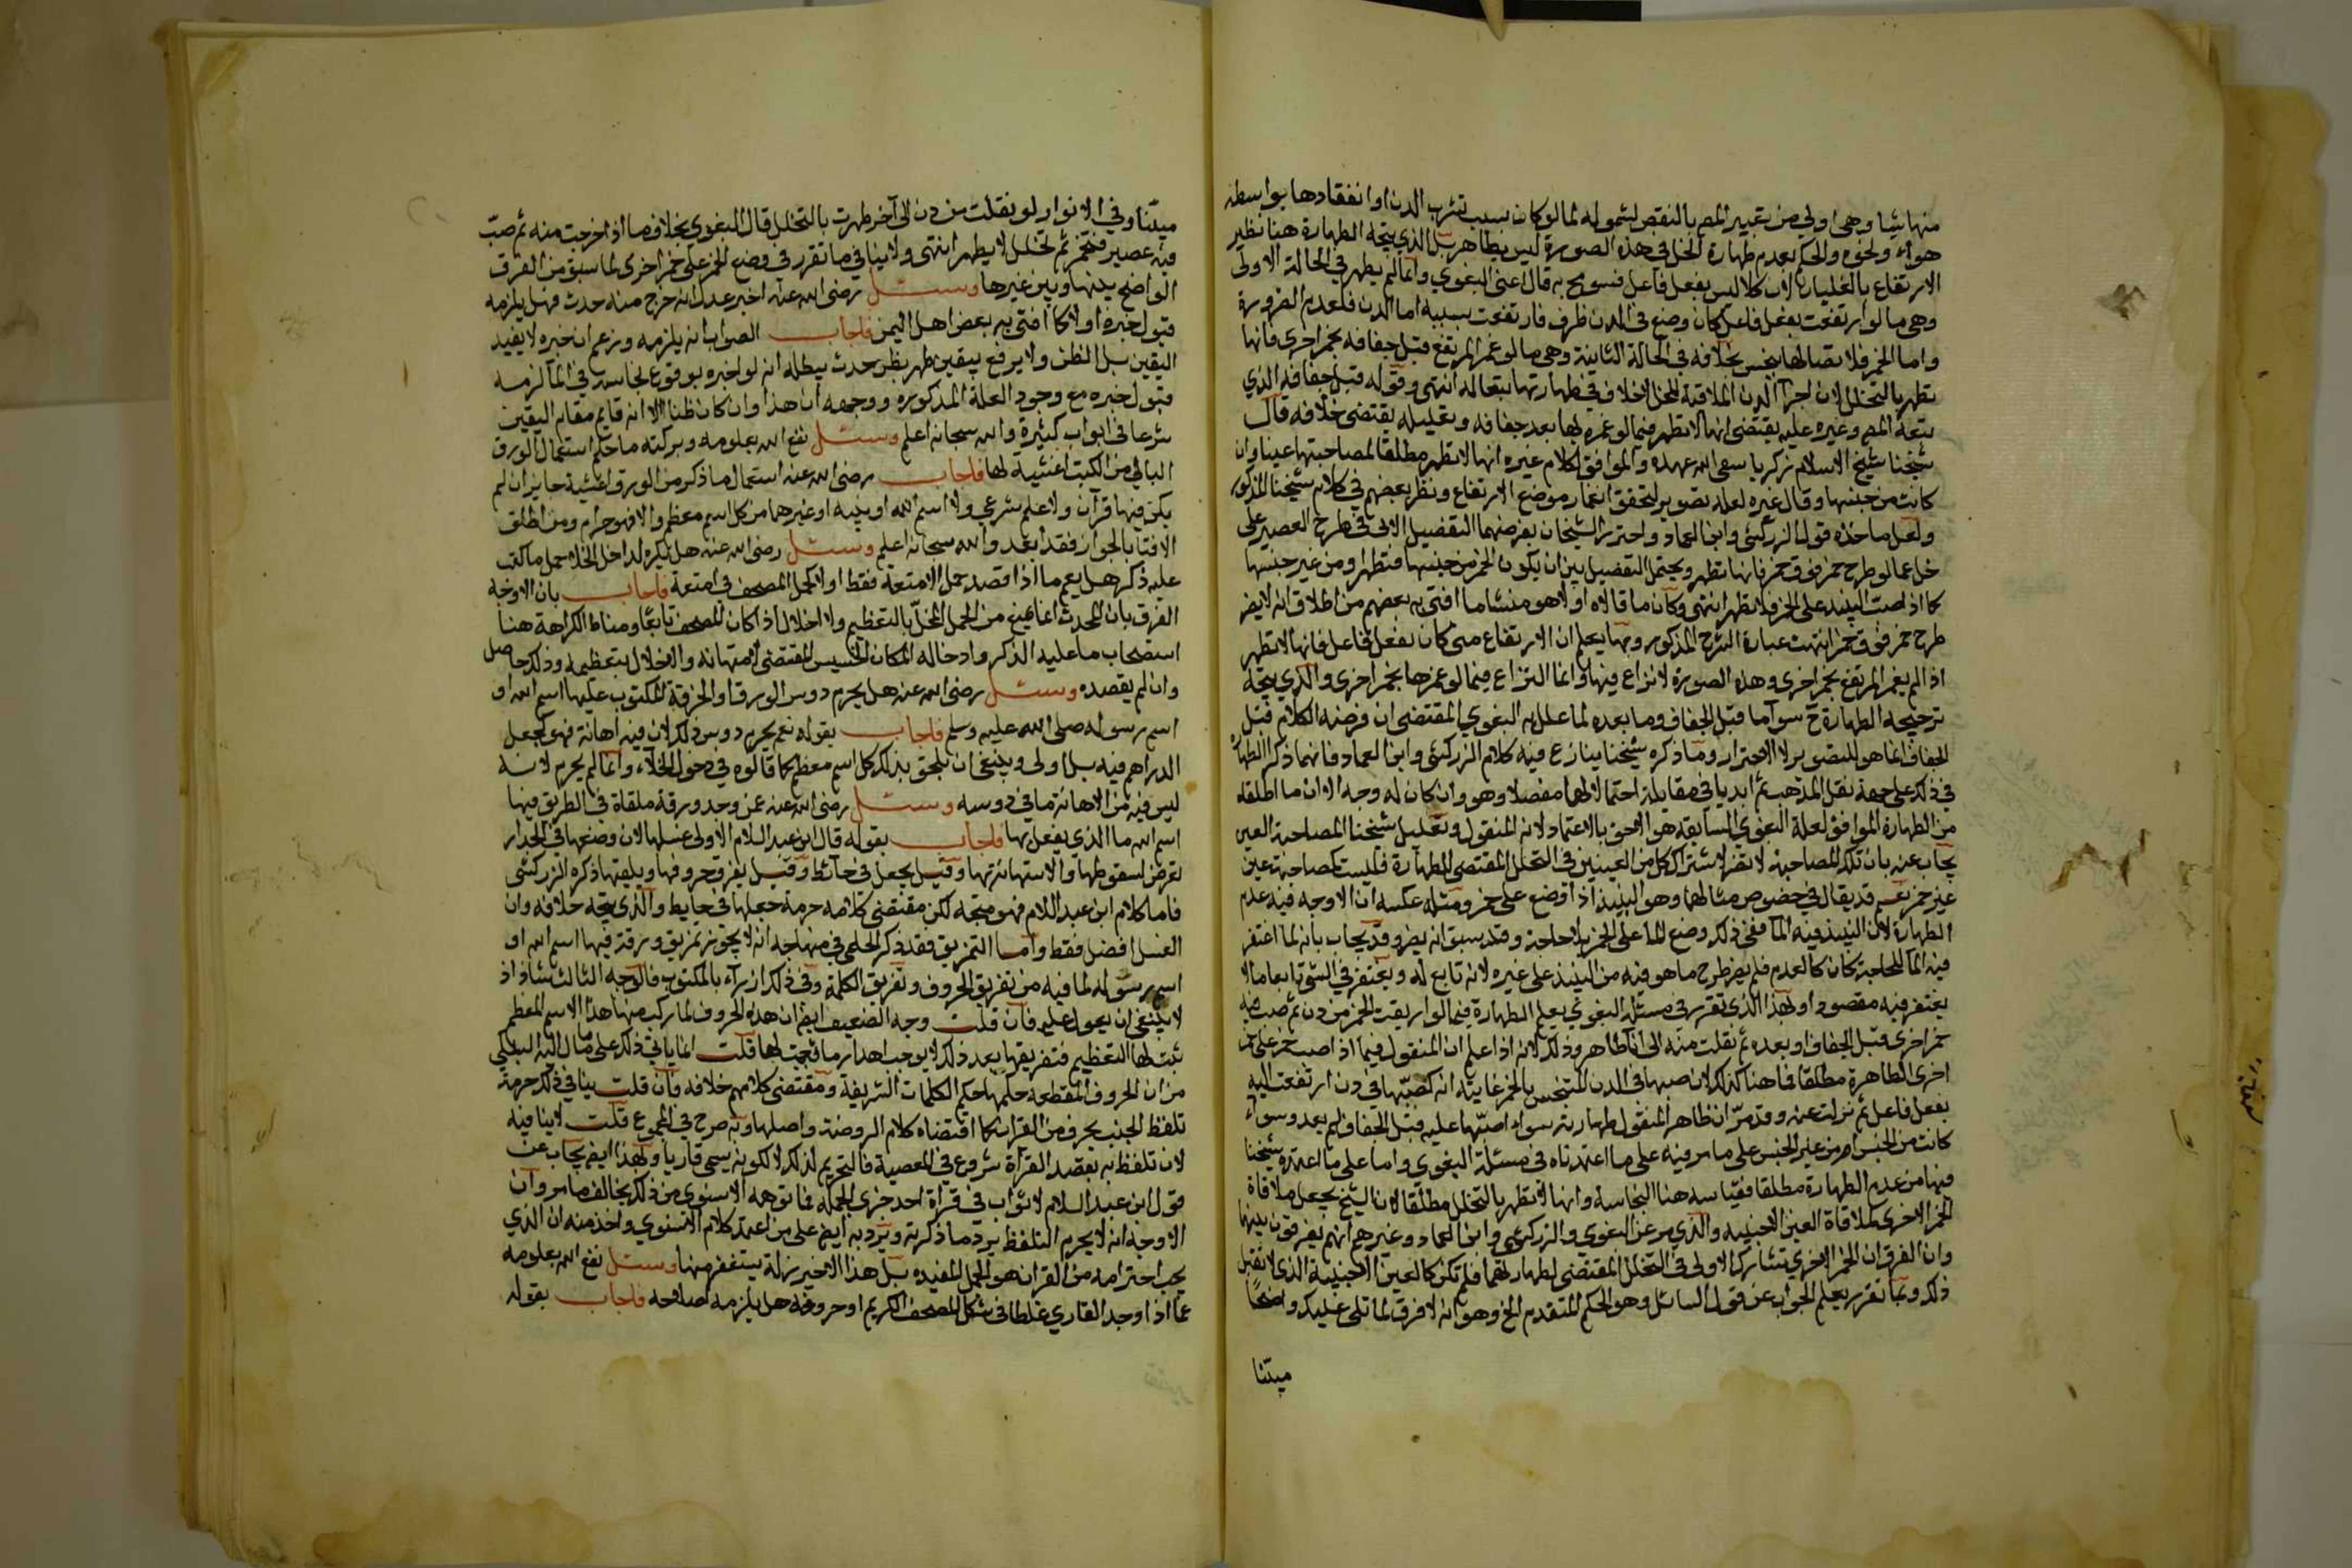 منها شيا وهى اولى من تعبير المص بالنقص لشموله لما لو كان بسبب تشرب الدن او انعقادها بواسطة
هواء ونحوه والحكم بعدم طهارة الخل في هذه الصورة ليس بظاهر بل الذي يتجه الطهارة هنا نظير
الارتفاع بالغليان لان كلا ليس بفعل فاعل فسومح به قال اعنى البغوي وانما لم يطهر في الحالة الاولى
وهى ما لو ارتفعت بفعل فاعل كان وضع فى الدن ظرف فارتفعت بسببه اما الدن فلعدم الضرورة
واما الخمر فلاتصالها بنجس بخلافه فى الحالة الثانية وهى ما لو غمر المرتفع قبل جفافه بخمر اخرى فانها
تطهر بالتخلل لان اجزآ الدن الملاقية للخل لاخلاف في طهارتها تبعا له انتهى وقوله قبل جفافه الذي
تبعه المص وغيره عليه يقتضى انها لا تطهر فيما لو غمره بها بعد جفافه وتعليله يقتضى خلافه قال
شيخنا شيخ الاسلام زكريا سقى الله عهده والموافق لكلام غيره انها لا تطهر مطلقا لمصاحبتها عينا وان
كانت من جنسها وقال غيره لعله تصوير لتحقق انغمار موضع الارتفاع ونظر بعضهم في كلام شيخنا المذكور
ولعل ماخذه قول الزركشى وابن العماد واحترز الشيخان بفرضهما التفصيل الاتى في طرح العصير على
خل عما لو طرح خمر فوق خمر فانها تطهر ويحتمل التفصيل بين ان يكون الخمر من جنسها فتطهر او من غير جنسها
كما اذا صب النبيذ على الخمر فلا تطهر انتهى وكان ما قالاه اولا هو منشا ما افتى به بعضهم من اطلاق انه لا يضر
طرح خمر فوق خمر انتهت عبارة الشرح المذكور وبها يعلم ان الارتفاع متى كان بفعل فاعل فانها لا تطهر
اذا لم يغمر المرتفع بخمر اخرى وهذه الصورة لا نزاع فيها وانما النزاع فيما لو غمرها بخمر اخرى والذي يتجه
ترجيحه الطهارة ح سوآ ما قبل الجفاف وما بعده لما علل به البغوي المقتضى ان فرضه الكلام قبل
الجفاف انما هو للتصوير لا الاحتراز وما ذكره شيخنا ينازع فيه كلام الزركشى وابن العماد فانهما ذكرا الطهارة
في ذلك على جهة نقل المذهب ثم ابديا في مقابلة احتمالا لهما مفصلا وهو وان كان له وجه الا ان ما اطلقاه
من الطهارة الموافق لعلة البغوي السابقة هو الاحق بالاعتماد لانه المنقول وتعليل شيخنا المصاحبة العين
يجاب عنه بان تلك المصاحبة لا تضر لاشتراك كل من العينين فى التخلل المقتضى للطهارة فليست كمصاحبة عين
غير خمر نعم قد يقال في خصوص مثالهما وهو النبيذ اذا وضع على خمر ومثله عكسه ان الاوجه فيه عدم
الطهارة لان النبيذ فيه المآ ففى ذلك وضع المآ على الخمر بلا حاجة وقد سبق انه يضر وقد يجاب بانه لما اغتفر
فيه المآ للحاجة كان كالعدم فلم يضر طرح ما هو فيه من النبيذ على غيره لانه تابع له ويغتفر في الشى تابعا ما لا
يغتفر فيه مقصودا وبهذا الذي تقرر في مسئلة البغوي يعلم الطهارة فيما لو اريقت الخمر من دن ثم صب فيه
خمر اخرى قبل الجفاف او بعده ثم نقلت منه الى انآ طاهر وذلك لانه اذا علم ان المنقول فيما اذا صب خمر على خمر
اخرى الطاهرة مطلقا فاهنا كذلك لان صبها في الدن المتنجس بالخمر غايته انه كصبها في دن ارتفعت اليه
بفعل فاعل ثم نزلت عنه وقد مر ان ظاهر المنقول طهارته سواء اصبها عليه قبل الجفاف ام بعد وسواء
كانت من الجنس ام من غير الجنس على ما مر فيه على ما اعتمدناه في مسئلة البغوي واما على ما اعتمده شيخنا
فيها من عدم الطهارة مطلقا فقياسه هنا النجاسة وانها لا تطهر بالتخلل مطلقا لان الشيخ يجعل ملاقاة
الخمر الاخرى كملاقاة العين الاجنبيه والذي مر عن البغوي والزركشي وابن العماد وغيرهم انهم يفرقون بينهما
وان الفرق ان الخمر الاخرى تشارك الاولى في التخلل المقتضى لطهارتهما فلم تكن كالعين الاجنبية الذي لا تقبل
ذلك وبما تقرر يعلم الجواب عن قول السائل وهو الحكم المتقدم الخ وهو انه لا فرق لما تلى عليك واضحا
مبيّنا
مبيّنا وفي الانوار لو نقلت من دن الى آخر طهرت بالتخلل قال البغوي بخلاف ما اذا اخرجت منه ثم صبّ
فيه عصير فتخمر ثم تخلل لا يطهر انتهى ولا ينافي ما تقرر في وضع الخمر على خمر اخرى لما سبق من الفرق
الواضح بينها وبين غيرها وسئل رضى الله عنه اخبر عدل انه خرج منه حدث فهل يلزمه
قبول خبره او لا كما افتى به بعض اهل اليمن فاجاب الصواب انه يلزمه وزعم ان خبره لا يفيد
اليقين بل الظن ولا يرفع بيقين طهر بظن حدث يبطله انه لو اخبره بوقوع نجاسة في المآ لزمه
قبول خبره مع وجود العلة المذكوره ووجهه ان هذا وان كان ظنا الا انه قايم مقام اليقين
شرعا في ابواب كثيرة والله سبحانه اعلم وسئل نفع الله بعلومه وبركته ما حكم استعمال الورق
البالي من الكتب اغشية لها فاجاب رضى الله عنه استعمال ما ذكر من الورق اغشية جايز ان لم
يكن فيها قرآن ولا علم شرعي ولا اسم الله او نبيه او غيرهما من كل اسم معظم والا فهو حرام ومن اطلق
الافتا بالجواز فقد ابعد والله سبحانه اعلم وسئل رضى الله عنه هل يكره لداخل الخلاء حمل ما كتب
عليه ذكر هل يعم ما اذا قصد حمل الامتعة فقط او لا كحمل المصحف في امتعة فاجاب بان الاوجه
الفرق بان المحدث انما منع من الحمل المخلّ بالتعظيم ولا اخلال اذا كان المصحف تابعا ومناط الكراهة هنا
استصحاب ما عليه الذكر وادخاله المكان الخسيس المقتضى لامتهانه والاخلال بتعظيمه وذلك حاصل
وان لم يقصده وسئل رضى الله عنه هل يحرم دوس الورق او الخرقة المكتوب عليها اسم الله او
اسم رسوله صلى الله عليه وسلم فاجاب بقوله نعم يحرم دوس ذلك لان فيه اهانة فهو كجعل
الدراهم فيه بل اولى وينبغى ان يلحق بذلك كل اسم معظم كما قالوه في دخول الخلآء وانما لم يحرم لانه
ليس فيه من الاهانة ما في دوسه وسئل رضى الله عنه عمن وجد ورقة ملقاة في الطريق فيها
اسم الله ما الذي يفعل بها فاجاب بقوله قال ابن عبد السلام الاولى غسلها لان وضعها في الجدار
تعرض لسقوطها والاستهانة بها وقيل يجعل في حائط وقيل يفرق حروفها ويلقيها ذكره الزركشى
فاما كلام ابن عبد السلام فهو متجه لكن مقتضى كلامه حرمة جعلها في حايط والذي يتجه خلافه وان
الغسل افضل فقط واما التمزيق فقد ذكر الحلمى في منهاجه انه لا يجوز تمزيق ورقة فيها اسم الله او
اسم رسوله لما فيه من تفريق الحروف وتفريق الكلمة وفي ذلك ازرآء بالمكتوب فالوجه الثالث شاذ اذ
لا ينبغي ان يعول عليه فان قلت وجه الضعيف ايضا ان هذه الحروف لما تركب منها هذا الاسم المعظم
ثبت لها التعظيم فتفريقها بعد ذلك لا يوجب اهدار ما ثبت لها قلت انما ياتي ذلك على ما مال اليه السبكي
من ان الحروف المقطعه حكمها حكم الكلمات الشريفة ومقتضى كلامهم خلافه فان قلت ينافي ذلك حرمة
تلفظ الجنب بحرف من القران كما اقتضاه كلام الروضة واصلها وبه صرح في المجموع قلت لا ينافيه
لان تلفظه به بقصد القرآة شروع في المعصية فالتحريم لذلك لا لكونه يسمى قاريا وبهذا ايضا يجاب عن
قول ابن عبد السلام لا ثواب في قرآة احد جزى الجمله فما توهمه الاسنوى من ذلك يخالف ما مر وان
الاوجه انه لا يحرم التلفظ يرد ما ذكرته ويرد به ايضا على من اعتمد كلام الاسنوي واخذ منه ان الذي
يجب احترامه من القران هو الجمل المفيده بل هذا الاخير زلة يستغفر منها وسئل نفع الله بعلومه
عما اذا وجد القاري غلطا في شكل المصحف الكريم او حروفه هل يلزمه اصلاحه فاجاب بقوله